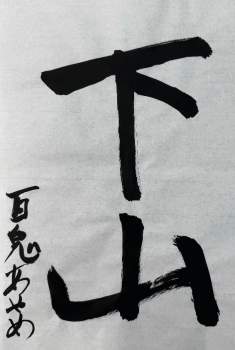 下山
百鬼あやめ